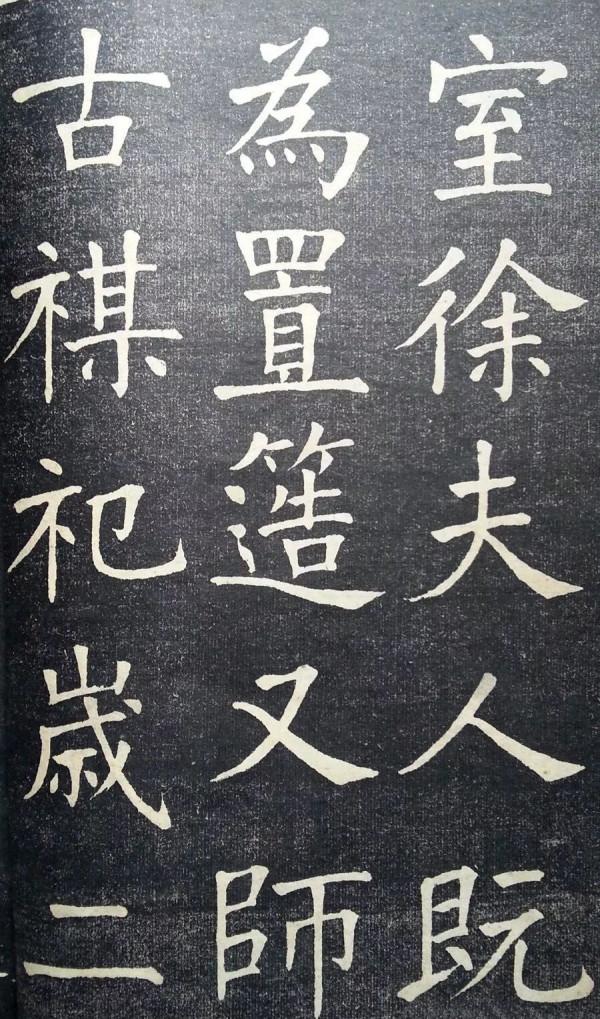 室徐夫人既
為置簉又師
古禖祀歳二